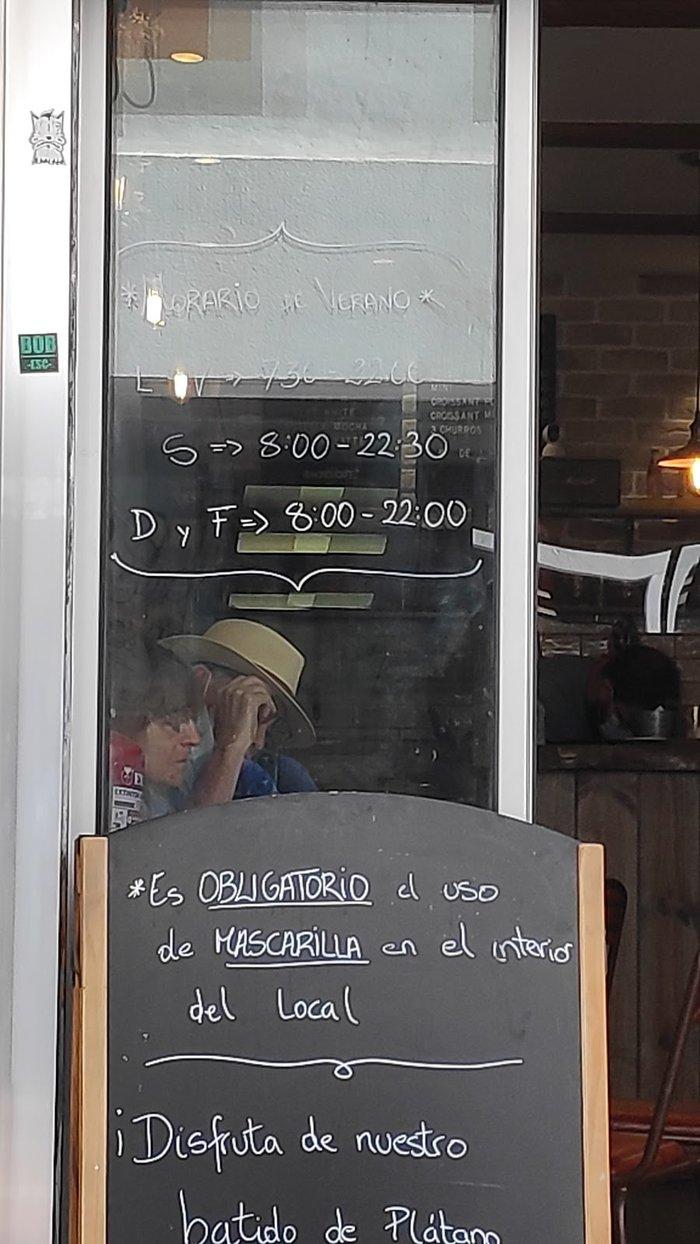 *HORARIO DE VERANO*
L - V => 7:30 - 22:00
S => 8:00 - 22:30
D y F => 8:00 - 22:00
BOB
-ESC-
CROISSANT
CROISSANT
3 CHURROS
MOCHA
*Es OBLIGATORIO el uso
de MASCARILLA en el interior
del Local
¡Disfruta de nuestro
batido de Plátano